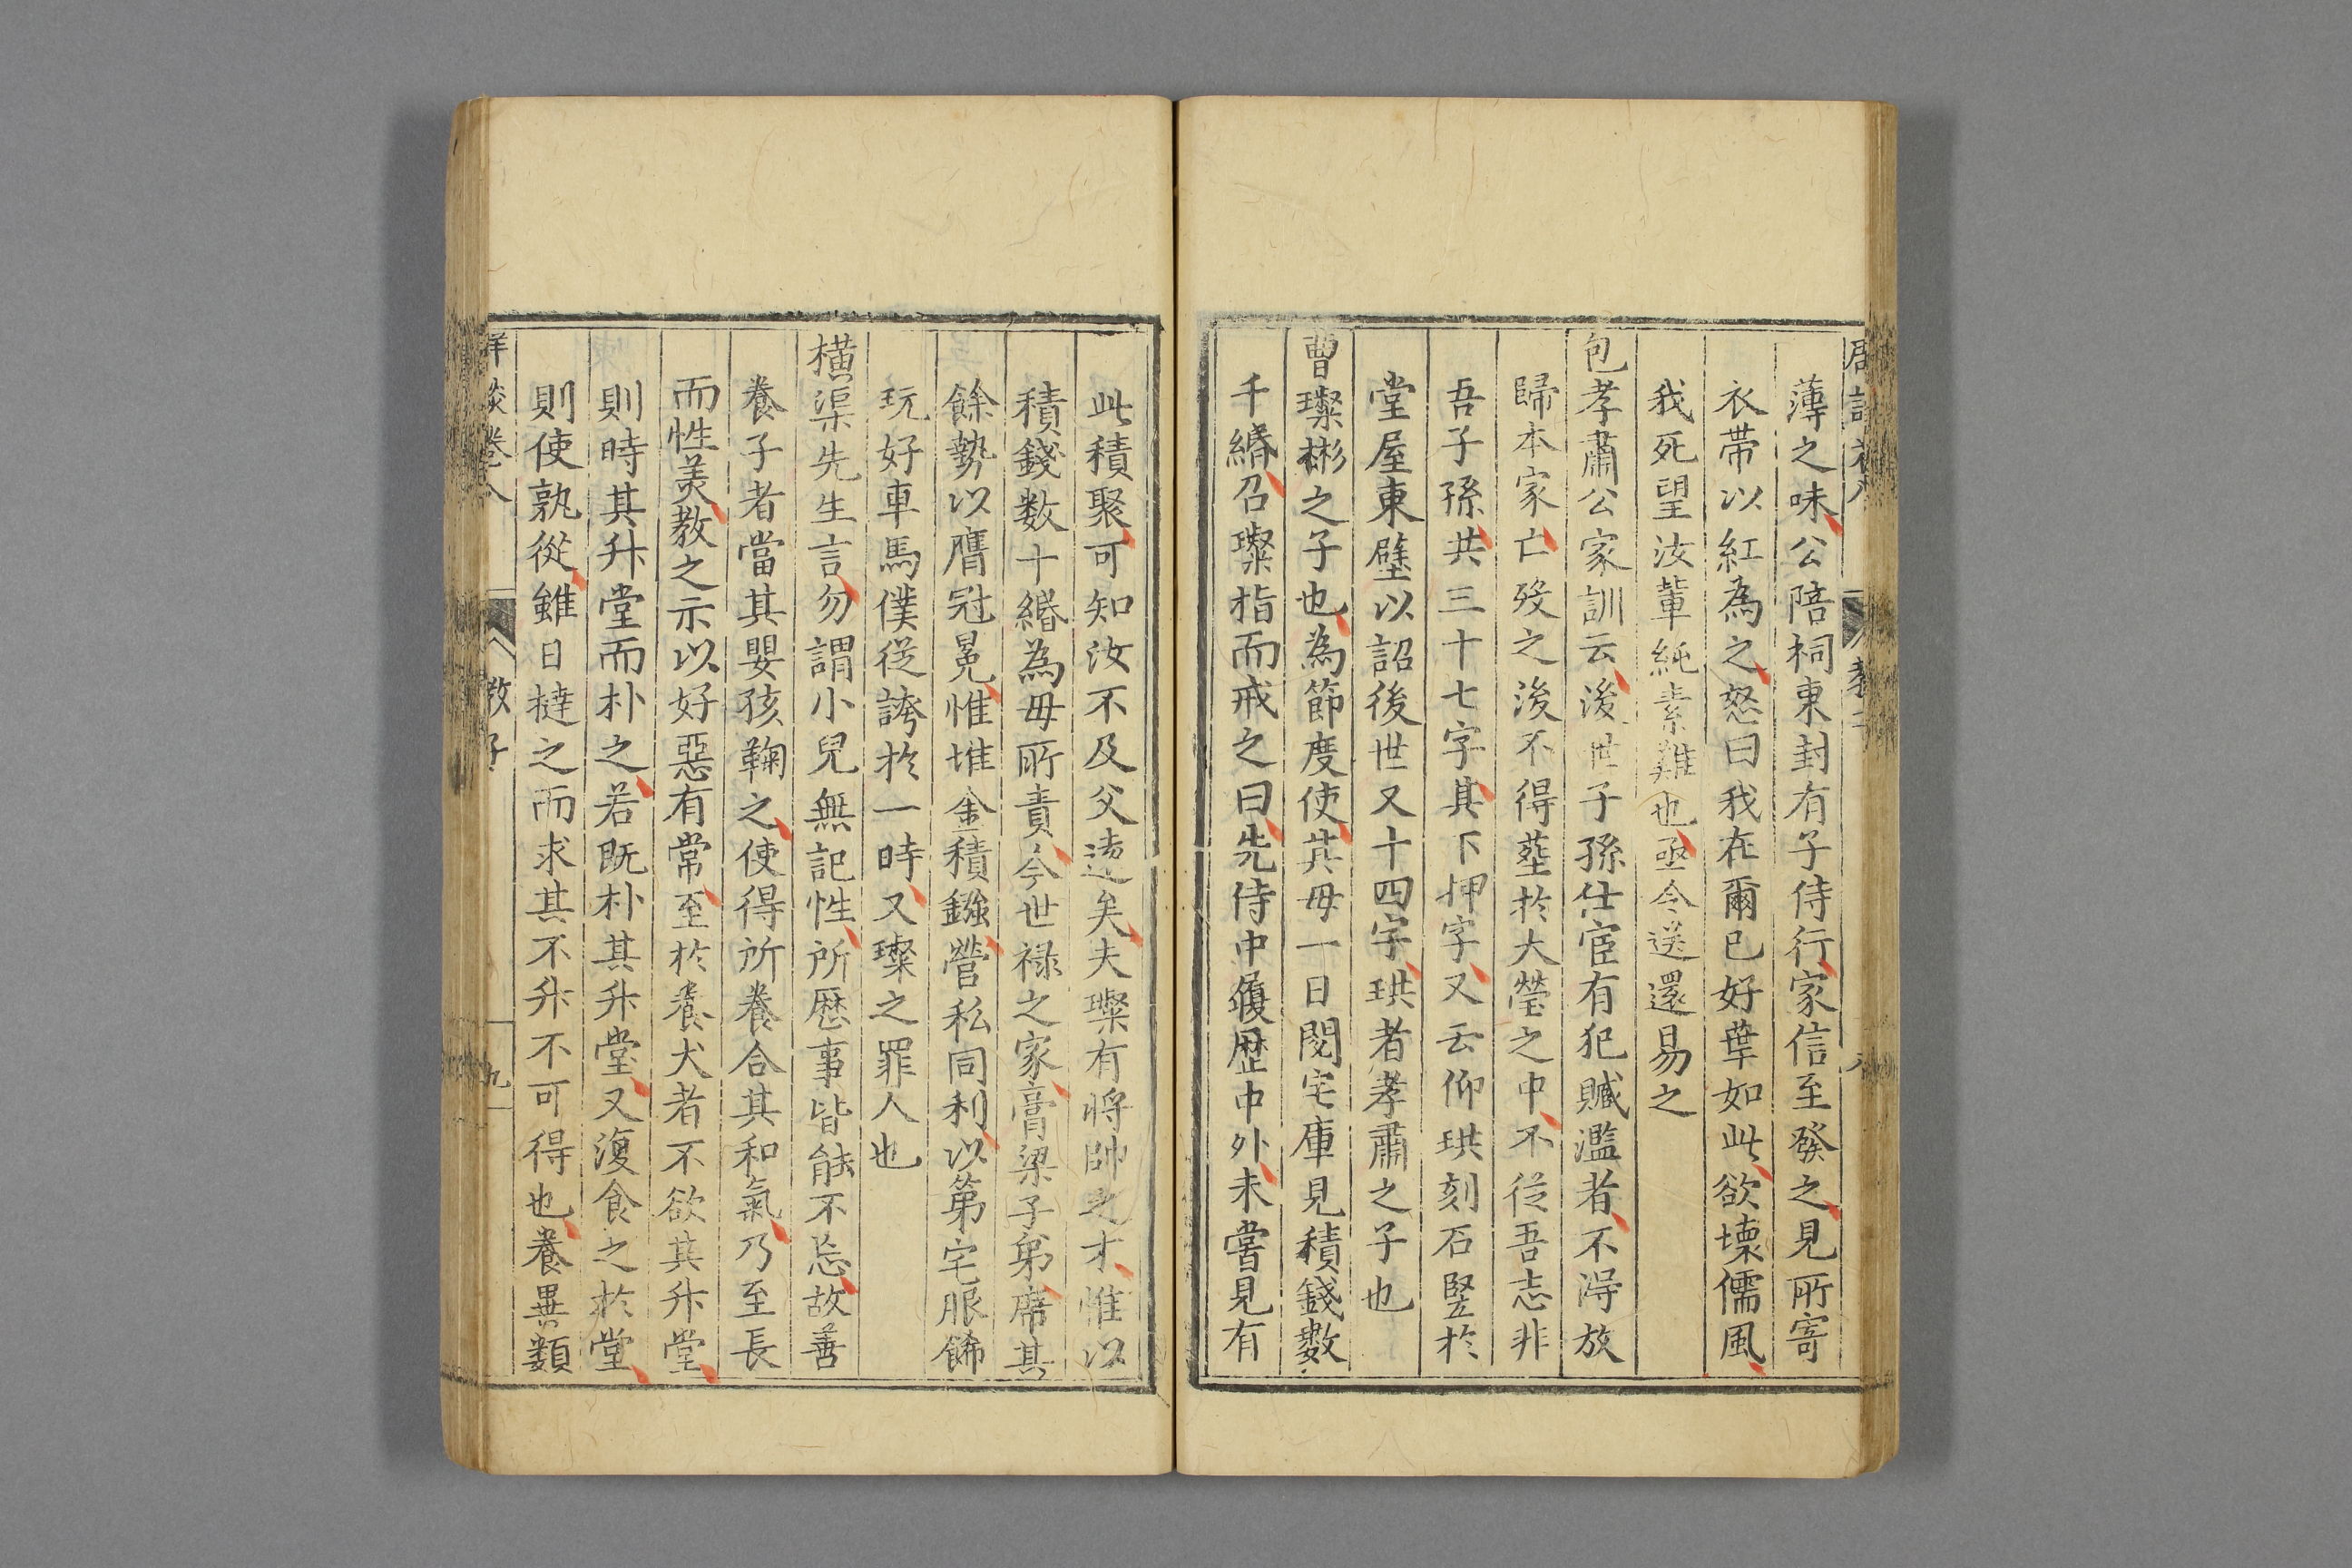 薄之味公陪祠東封有子侍行家信至發之見所寄
衣帶以紅為之怒曰我在爾已好華如此欲壞儒風
我死望汝輩純素難也亟令送還易之
包孝肅公家訓云後世子孫仕宦有犯贓濫者不得放
歸本家亡歿之後不得葬於大塋之中不從吾志非
吾子孫共三十七字其下押字又云仰珙刻石竪於
堂屋東壁以詔後世又十四字珙者孝肅之子也
曹璨彬之子也為節度使其母一日閱宅庫見積錢數
千緡召璨指而戒之曰先侍中履歷中外未嘗見有
此積聚可知汝不及父遠矣夫璨有將帥之才惟以
積錢数十緡為母所責今世禄之家膏粱子弟席其
餘勢以膺冠冕惟堆金積鏹營私同利以第宅服飾
玩好車馬僕從誇於一時又璨之罪人也
橫渠先生言勿謂小兒無記性所歷事皆能不忘故善
養子者當其嬰孩鞠之使得所養合其和氣乃至長
而性美教之示以好惡有常至於養犬者不欲其升堂
則時其升堂而朴之若既朴其升堂又復食之於堂
則使孰從雖日撻之而求其不升不可得也養異類
教子
九